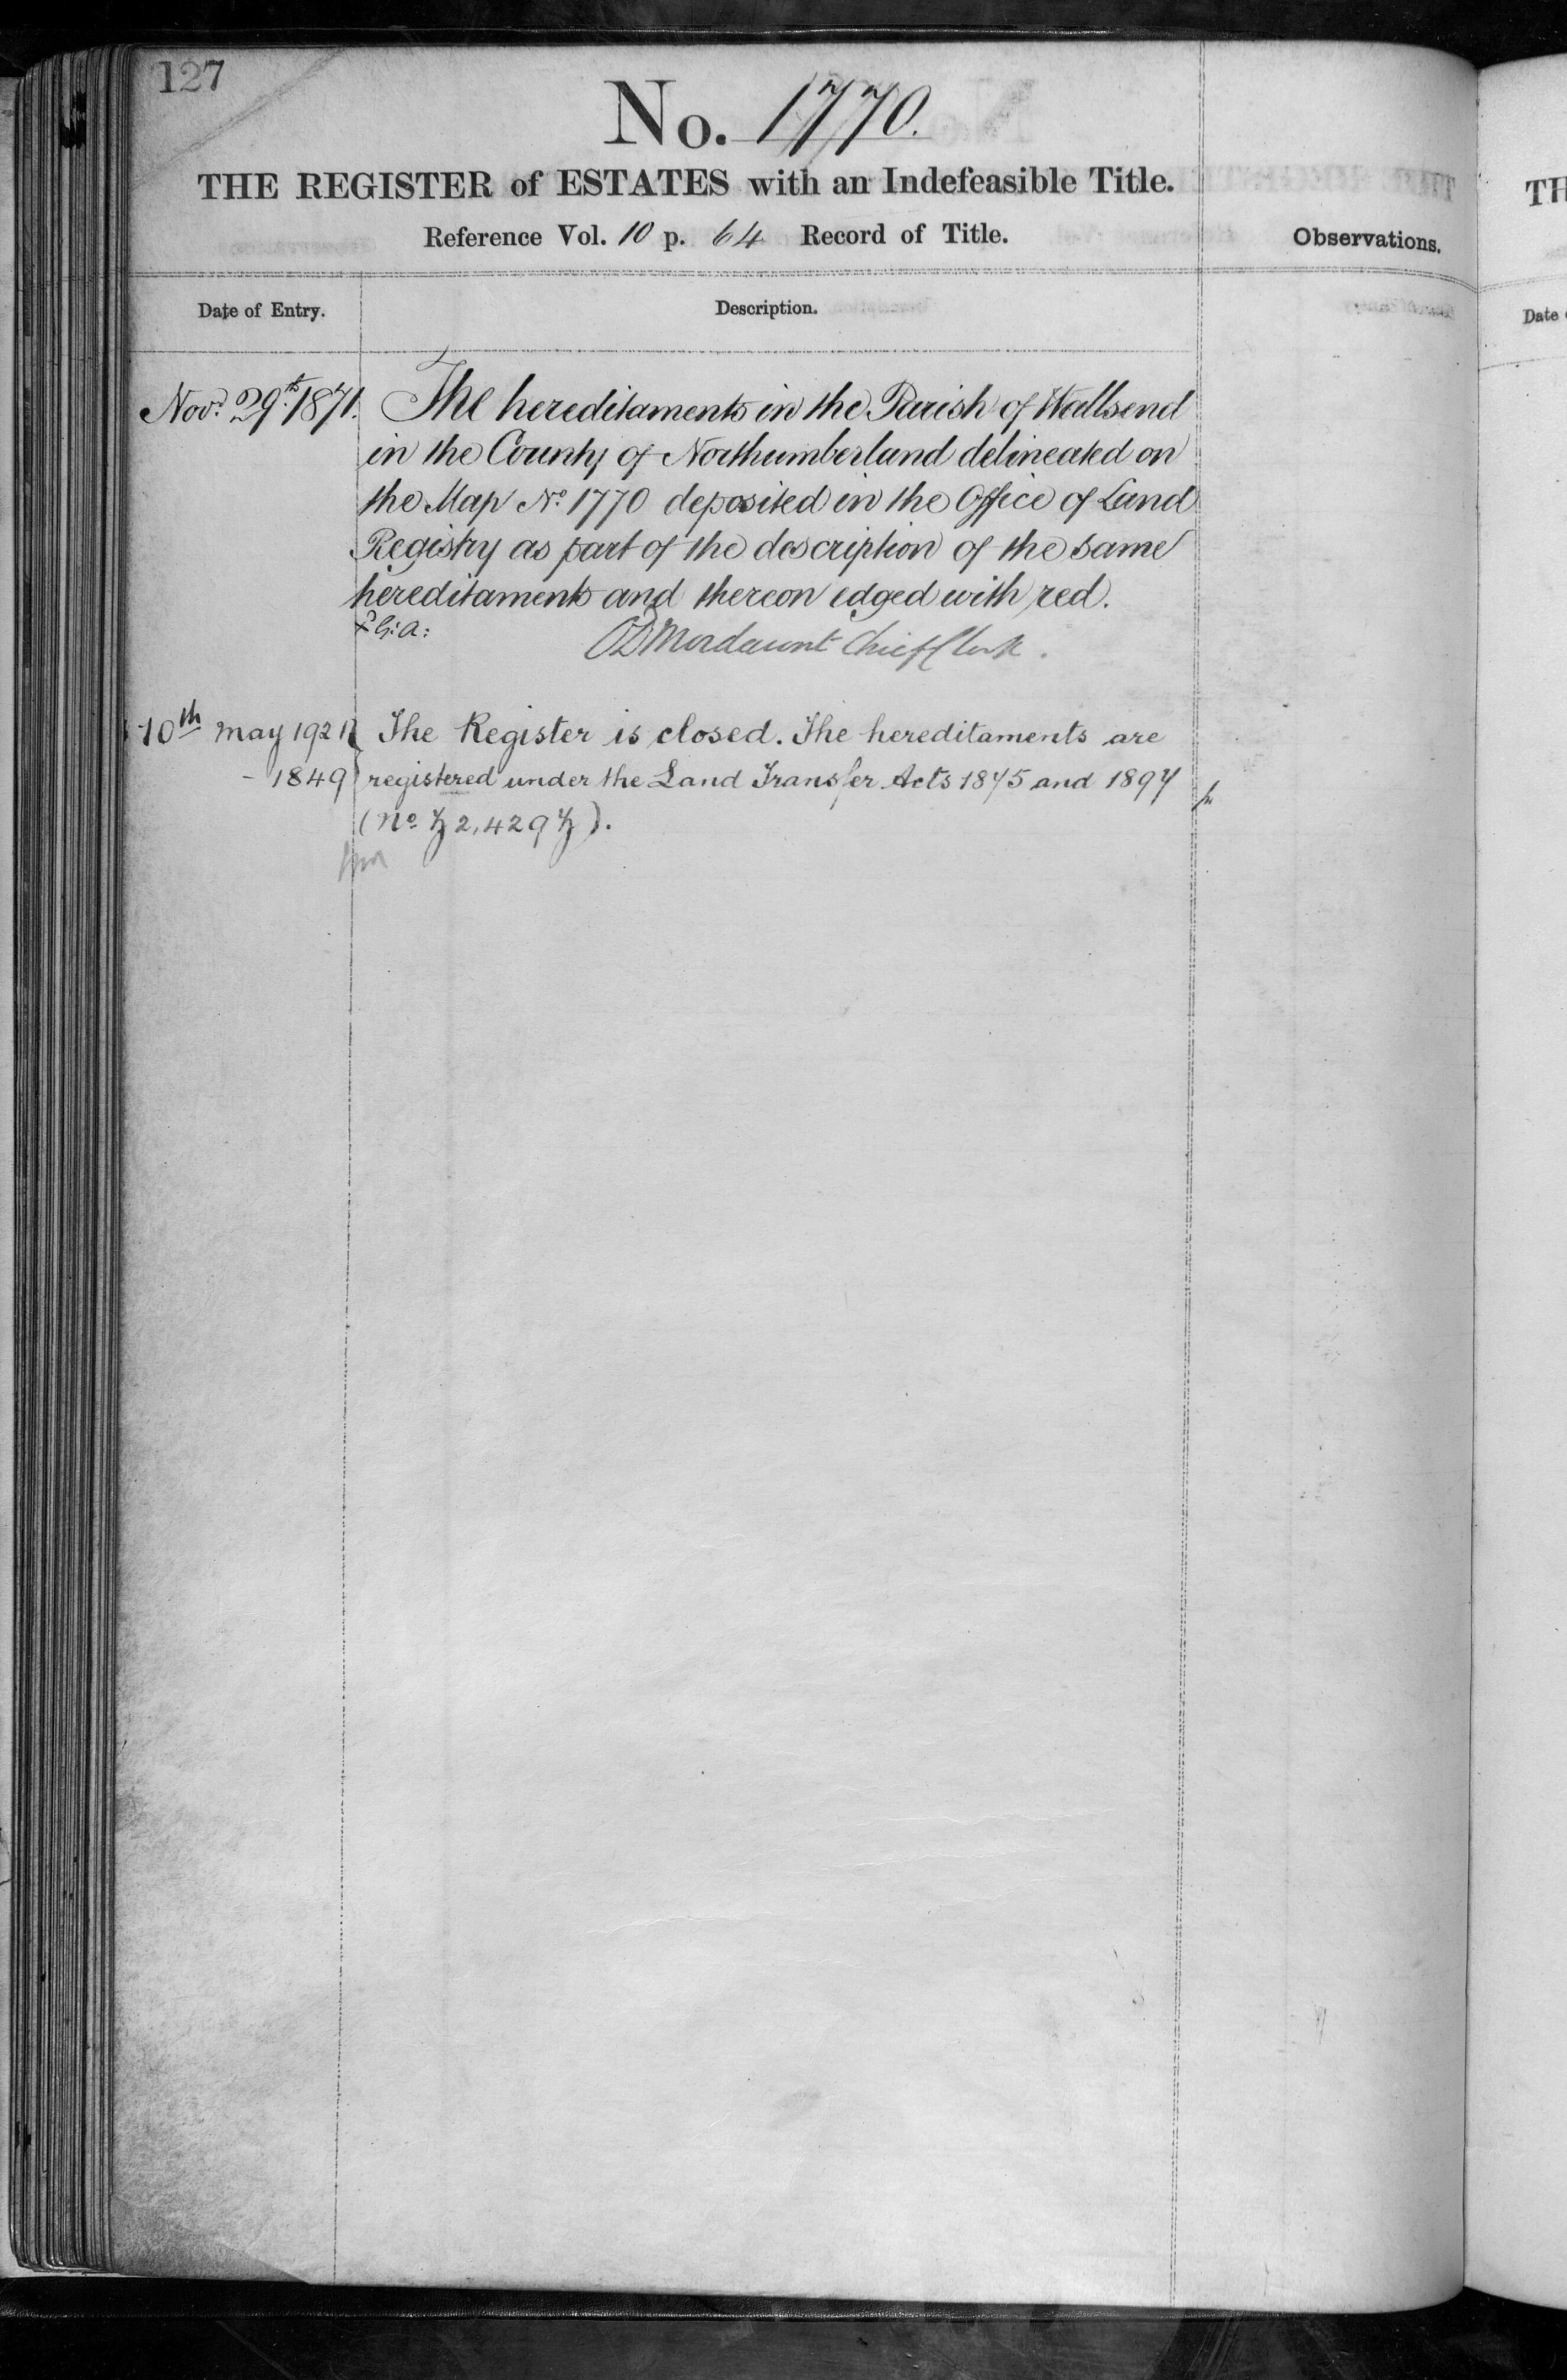 127
No. 1770.
THE REGISTER of ESTATES with an Indefeasible Title.
Reference Vol. 10 p. 64 Record of Title.
Observations.
Date of Entry.
Description.
Novr. 29th. 1871. The hereditaments in the Parish of Wallsend
in the County of Northumberland delineated on
the Map No. 1770 deposited in the Office of Land
Registry as part of the description of the same
hereditaments and thereon edged with red.
Mordaunt Chief Clerk.
10th May 1921 The Register is closed. The hereditaments are
- 1849 registered under the Land Transfer Acts 1875 and 1897
TH
Date